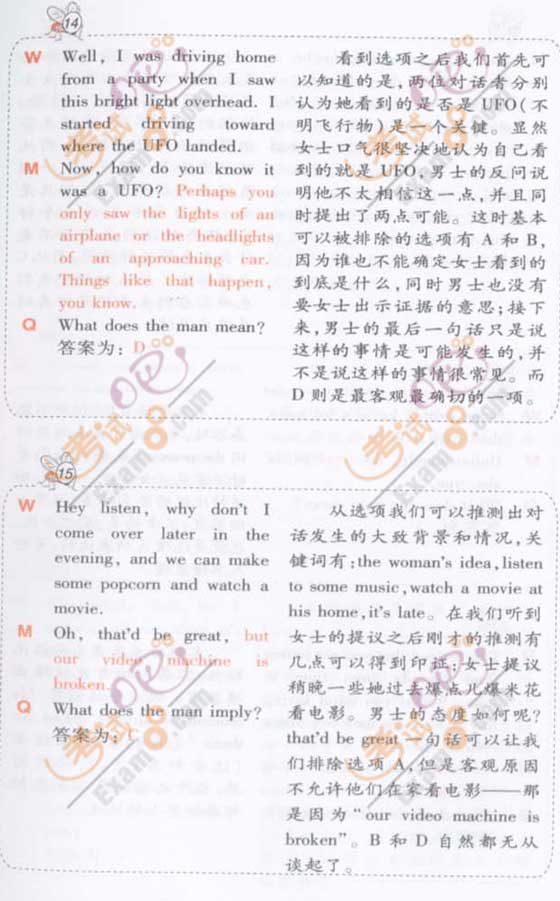 14
W Well, I was driving home
from a party when I saw
this bright light overhead. I
started driving toward
where the UFO landed.
M Now, how do you know it
was a UFO? Perhaps you
only saw the lights of an
airplane or the headlights
of an approaching car.
Things like that happen,
you know.
Q What does the man mean?
答案为:D
看到选项之后我们首先可
以知道的是,两位对话者分别
认为她看到的是否是 UFO(不
明飞行物)是一个关键。显然
女士口气很坚决地认为自己看
到的就是 UFO,男士的反问说
明他不太相信这一点,并且同
时提出了两点可能。这时基本
可以被排除的选项有 A 和 B,
因为谁也不能确定女士看到的
到底是什么,同时男士也没有
要女士出示证据的意思;接下
来,男士的最后一句话只是说
这样的事情是可能发生的,并
不是说这样的事情很常见。而
D 则是最客观最确切的一项。
15
W Hey listen, why don't I
come over later in the
evening, and we can make
some popcorn and watch a
movie.
M Oh, that'd be great, but
our video machine is
broken.
Q What does the man imply?
答案为:C
从选项我们可以推测出对
话发生的大致背景和情况,关
键词有:the woman's idea,listen
to some music,watch a movie at
his home,it's late。在我们听到
女士的提议之后刚才的推测有
几点可以得到印证:女士提议
稍晚一些她过去爆点儿爆米花
看电影。男士的态度如何呢?
that'd be great 一句话可以让我
们排除选项 A,但是客观原因
不允许他们在家看电影——那
是因为“our video machine is
broken”。B 和 D 自然都无从
谈起了。
考试吧
Exam8.com
考试吧
Exam8.com
考试吧
Exam8.com
考试吧
Exam8.com